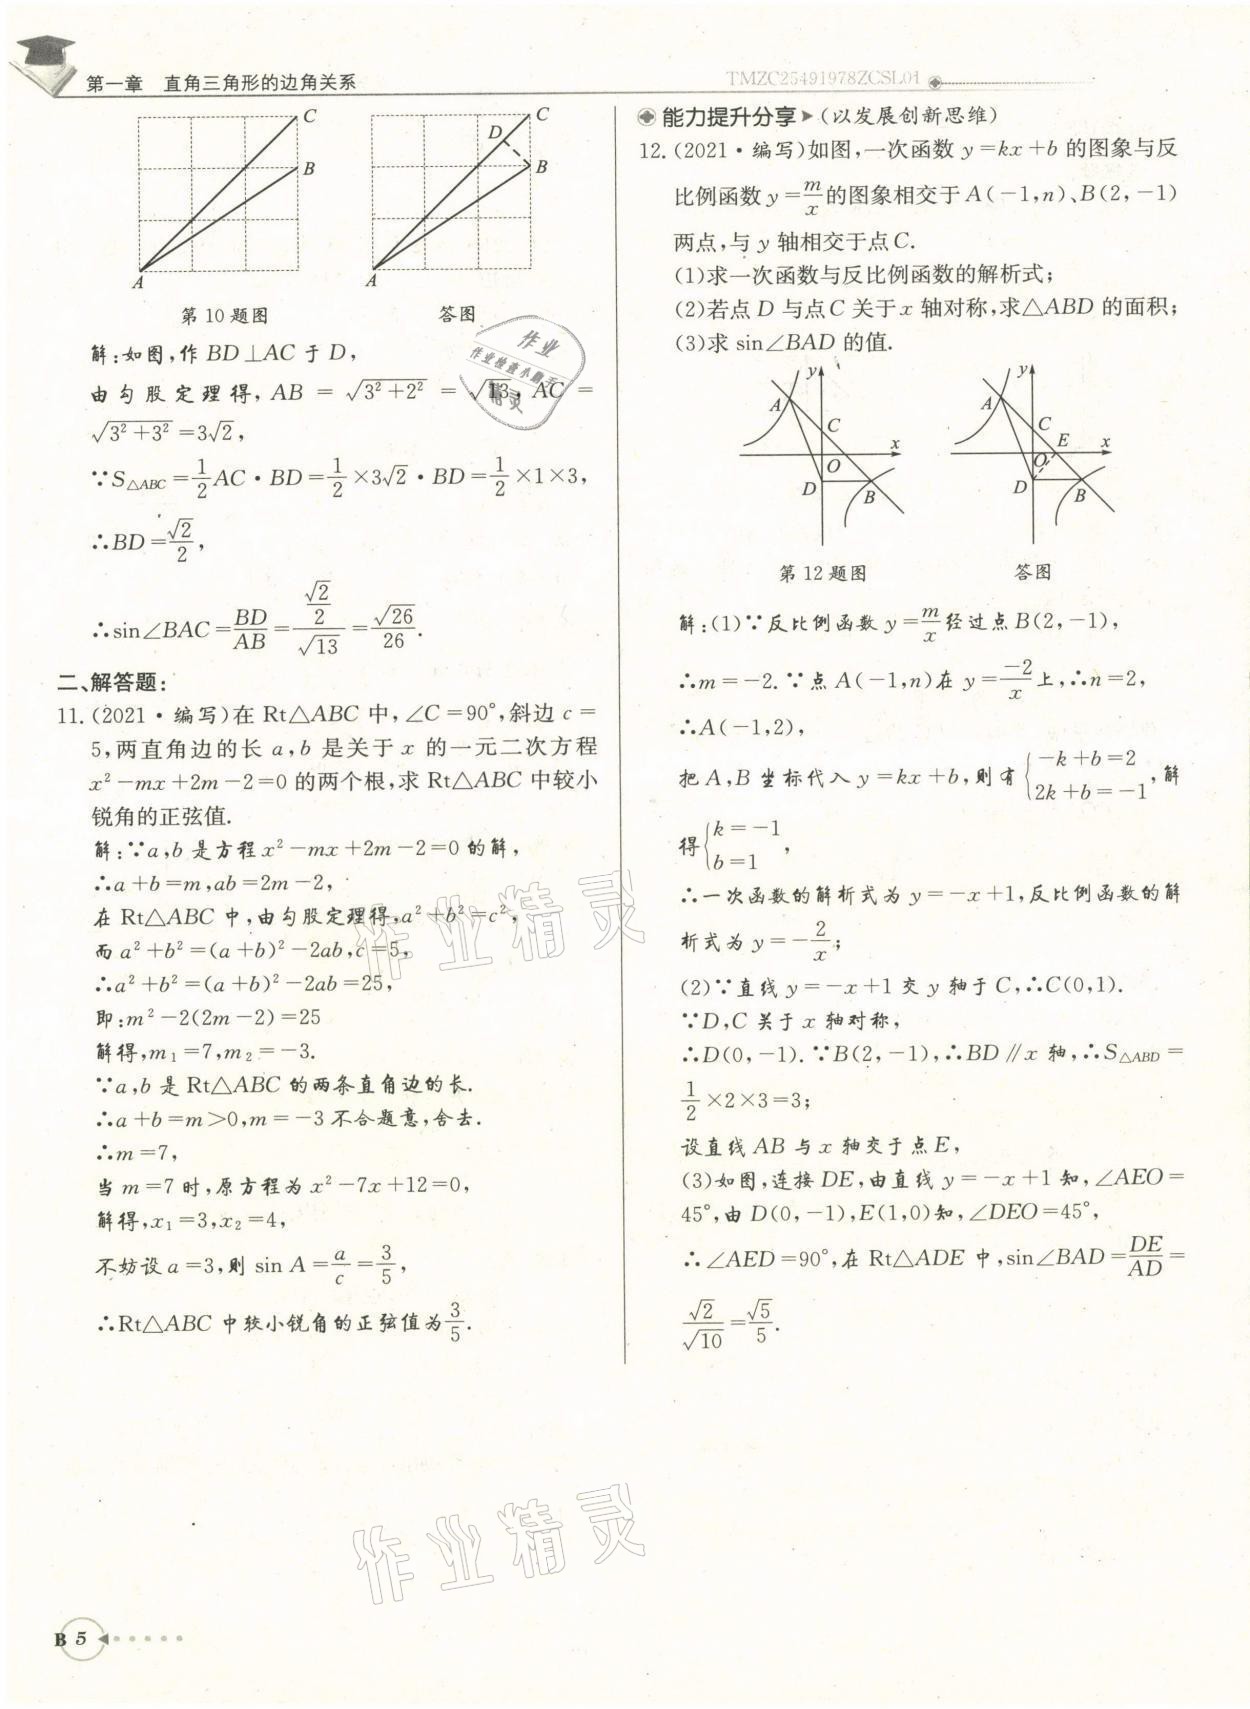 第一章 直角三角形的边角关系
TMZC25491978ZCSL01
C
B
A
第10题图
C
D
B
A
答图
解:如图,作 BD⊥AC 于 D,
由勾股定理得, AB = √(3²+2²) = √13, AC =
√(3²+3²) =3√2,
∵S△ABC=1/2 AC·BD=1/2×3√2·BD=1/2×1×3,
∴BD=√2/2,
∴sin∠BAC=BD/AB=(√2/2)/√13=√26/26.
二、解答题:
11.(2021·编写)在 Rt△ABC 中,∠C=90°,斜边 c=
5,两直角边的长 a,b 是关于 x 的一元二次方程
x²-mx+2m-2=0 的两个根,求 Rt△ABC 中较小
锐角的正弦值.
解:∵a,b 是方程 x²-mx+2m-2=0 的解,
∴a+b=m,ab=2m-2,
在 Rt△ABC 中,由勾股定理得,a²+b²=c²,
而 a²+b²=(a+b)²-2ab,c=5,
∴a²+b²=(a+b)²-2ab=25,
即:m²-2(2m-2)=25
解得,m₁=7,m₂=-3.
∵a,b 是 Rt△ABC 的两条直角边的长.
∴a+b=m>0,m=-3 不合题意,舍去.
∴m=7,
当 m=7 时,原方程为 x²-7x+12=0,
解得,x₁=3,x₂=4,
不妨设 a=3,则 sin A=a/c=3/5,
∴Rt△ABC 中较小锐角的正弦值为 3/5.
能力提升分享(以发展创新思维)
12.(2021·编写)如图,一次函数 y=kx+b 的图象与反
比例函数 y=m/x 的图象相交于 A(-1,n)、B(2,-1)
两点,与 y 轴相交于点 C.
(1)求一次函数与反比例函数的解析式;
(2)若点 D 与点 C 关于 x 轴对称,求△ABD 的面积;
(3)求 sin∠BAD 的值.
y
A
C
x
O
D
B
第12题图
y
A
C
E
x
O
D
B
答图
解:(1)∵反比例函数 y=m/x 经过点 B(2,-1),
∴m=-2.∵点 A(-1,n)在 y=-2/x 上,∴n=2,
∴A(-1,2),
把 A,B 坐标代入 y=kx+b,则有{-k+b=2 2k+b=-1,解
得{k=-1 b=1,
∴一次函数的解析式为 y=-x+1,反比例函数的解
析式为 y=-2/x;
(2)∵直线 y=-x+1 交 y 轴于 C,∴C(0,1).
∵D,C 关于 x 轴对称,
∴D(0,-1).∵B(2,-1),∴BD∥x 轴,∴S△ABD=
1/2×2×3=3;
设直线 AB 与 x 轴交于点 E,
(3)如图,连接 DE,由直线 y=-x+1 知,∠AEO=
45°,由 D(0,-1),E(1,0)知,∠DEO=45°,
∴∠AED=90°,在 Rt△ADE 中,sin∠BAD=DE/AD=
√2/√10=√5/5.
作业
作业检查小助手
精灵
作业精灵
作业精灵
B 5